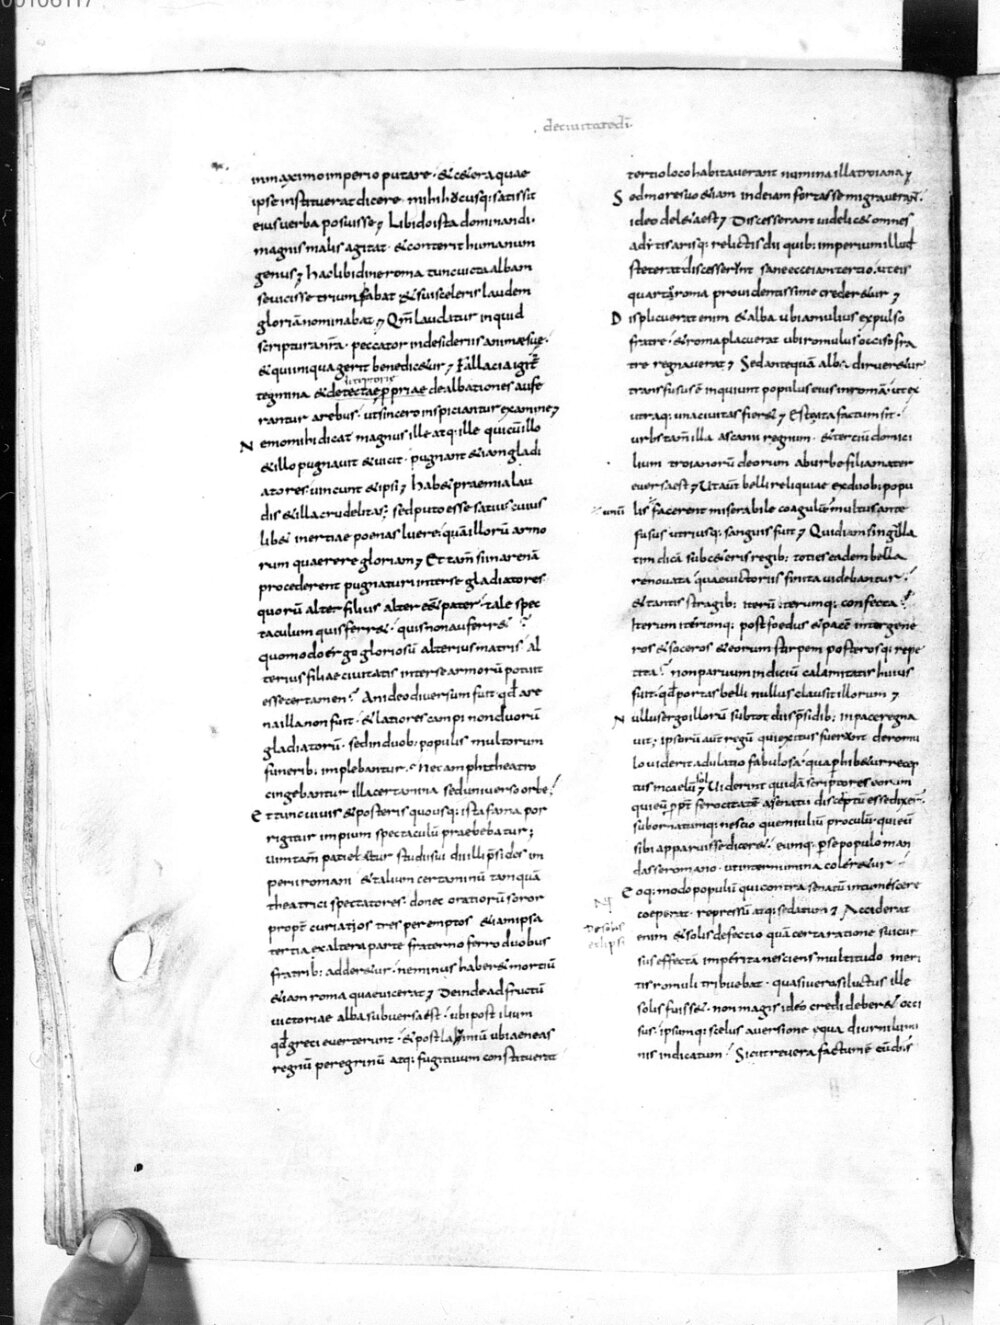 00106117
deciuitatedī
inmaximoimperio putare · &c&era quae
ipse instituerat dicere · mihi hucusq: satis sit
eius uerba posuisse ; Libido ista dominandi ·
magnis malis agitat · & conterit humanum
genus ; hac libidine roma tunc uicta albam
se uicisse triumfabat & sui sceleris laudem
gloriā nominabat ; Qm̄ laudatur inquid
scriptura nr̄a · peccator in desideriis animae suę ·
& qui iniqua gerit benedic&ur ; Fallacia igit̄
tegmina & detectae ppriae dealbationes aufe
rantur a rebus · ut sincero inspiciantur examine ;
Nemo mihi dicat magnus ille atq: ille · quia cū illo
& illo pugnauit & uicit · pugnant & iam gladi
atores · uincunt & ipsi ; hab& praemia lau
dis & illa crudelitas ; sed puto esse satius cuius
lib& inertiae poenas luere · quā illorū armo
rum quaerere gloriam ; Et tam̄ si in arenā
procederent pugnaturi inter se gladiatores
quorū alter filius alter ēēt pater · tale spec
taculum quis ferr& · quis non auferr& ?
quomodo ergo gloriosū alterius matris al
terius filiae ciuitatis inter se armorū potuit
esse certamen ? An ideo diuersum fuit · qđ are
na illa non fuit · & latiores campi non duorū
gladiatorū · sed in duob: populis multorum
funerib: implebantur · nec amphitheatro
cingebantur illa certamina sed uniuerso orbe ?
Et tunc uiuis & posteris quousq: ista fama por
rigitur impium spectaculū praebebatur ;
Uim tam̄
perii romani & talium certaminū tanquā
theatrici spectatores · donec oratiorū soror
propt̄ curiatios tres peremptos & iam ipsa
tertia ex altera parte fraterno ferro duobus
fratrib: adder&ur · ne minus haber& mortiū
&iam roma quae uicerat ; Deinde ad fructū
uictoriae alba subuersa est · ubi post ilium
qđ greci euerterunt · & post lauinium ubi aeneas
regnū peregrinū atq: fugitiuum constituerat
tertio loco habitauerant numina illa troiana ;
Sed more suo &iam inde iam fortasse migrauerant ·
ideo del&a est ; Discesserant uidelic& omnes
adytis arisq: relictis dii quib: imperium illud
steterat discesserunt sane ecce iam tertio · ut eis
quarta roma prouidentissime creder&ur ;
Displicuerat enim & alba ubi amulius expulso
fratre · & roma placuerat ubi romulus occiso fra
tre regnauerat ; Sed antequā alba dirueretur
transfusus ē inquiunt populus eius in romā · ut ex
utraq: una ciuitas fier& ; Esto ita factum sit ·
urbs tam̄ illa ascanii regnum · & tertiū domici
lium troianorū deorum ab urbe filia mater
euersa est ; Ut aut̄ belli reliquiae ex duob: popu
unū lis facerent miserabile coagulū multus ante
fusus utriusq: sanguis fuit ; Quid iam singillа
tim dicā sub ceteris regib: toties eadem bella
renouata quae uictoriis finita uidebantur ?
& tantis stragib: iterū iterumq: confecta ?
Iterum iterumq: post foedus & pacē inter gene
ros & soceros & eorum stirpem posterosq: repe
tita ? non paruum indiciū calamitatis huius
fuit · qđ portas belli nullus clausit illorum ;
Nullus ergo illorū sub tot diis p̄sidib: in pace regna
uit ; ipsorū aut̄ regū qui exitus fuerunt de romu
lo uiderit adulatio fabulosa · qua phib&ur recep
tus in caelū ; Uiderint quidā scriptores eorum
qui eū ppt̄ ferocitatē a senatu disceptū esse dixer̄ ·
subornatumq: nescio quem iuliū proculū · qui eū
sibi apparuisse dicer& · eumq: p se populo man
dasse romano · ut inter numina coler&ur
Eoq: modo populū qui contra senatū intumescere
coeperat · repressū atq: sedatum ; Acciderat
De solis
eclipsi
enim & solis defectio quā certa ratione sui cur
sus effectā imperita nesciens multitudo meri
tis romuli tribuebat · quasi uero si luctus ille
solis fuiss& · non magis ideo credi deber& occi
sus · ipsumq: scelus auersione &iqua diurni lumi
nis indicatum · Sicut re uera factum ē cū dn̄s